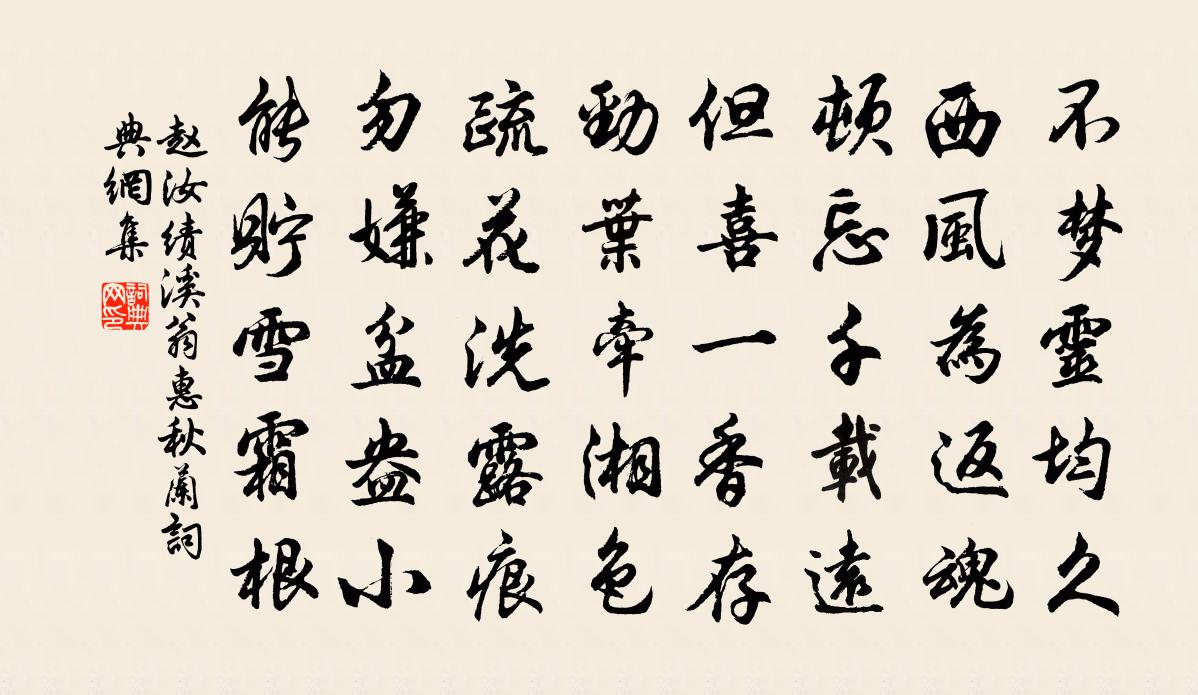 不梦靈均久
西風為返魂
頓忘千載遠
但喜一香存
勁葉牽湘色
疏花洗露痕
勿嫌盆盎小
能貯雪霜根
赵汝績溪翁惠秋蘭詞
典網集
詞典
网印